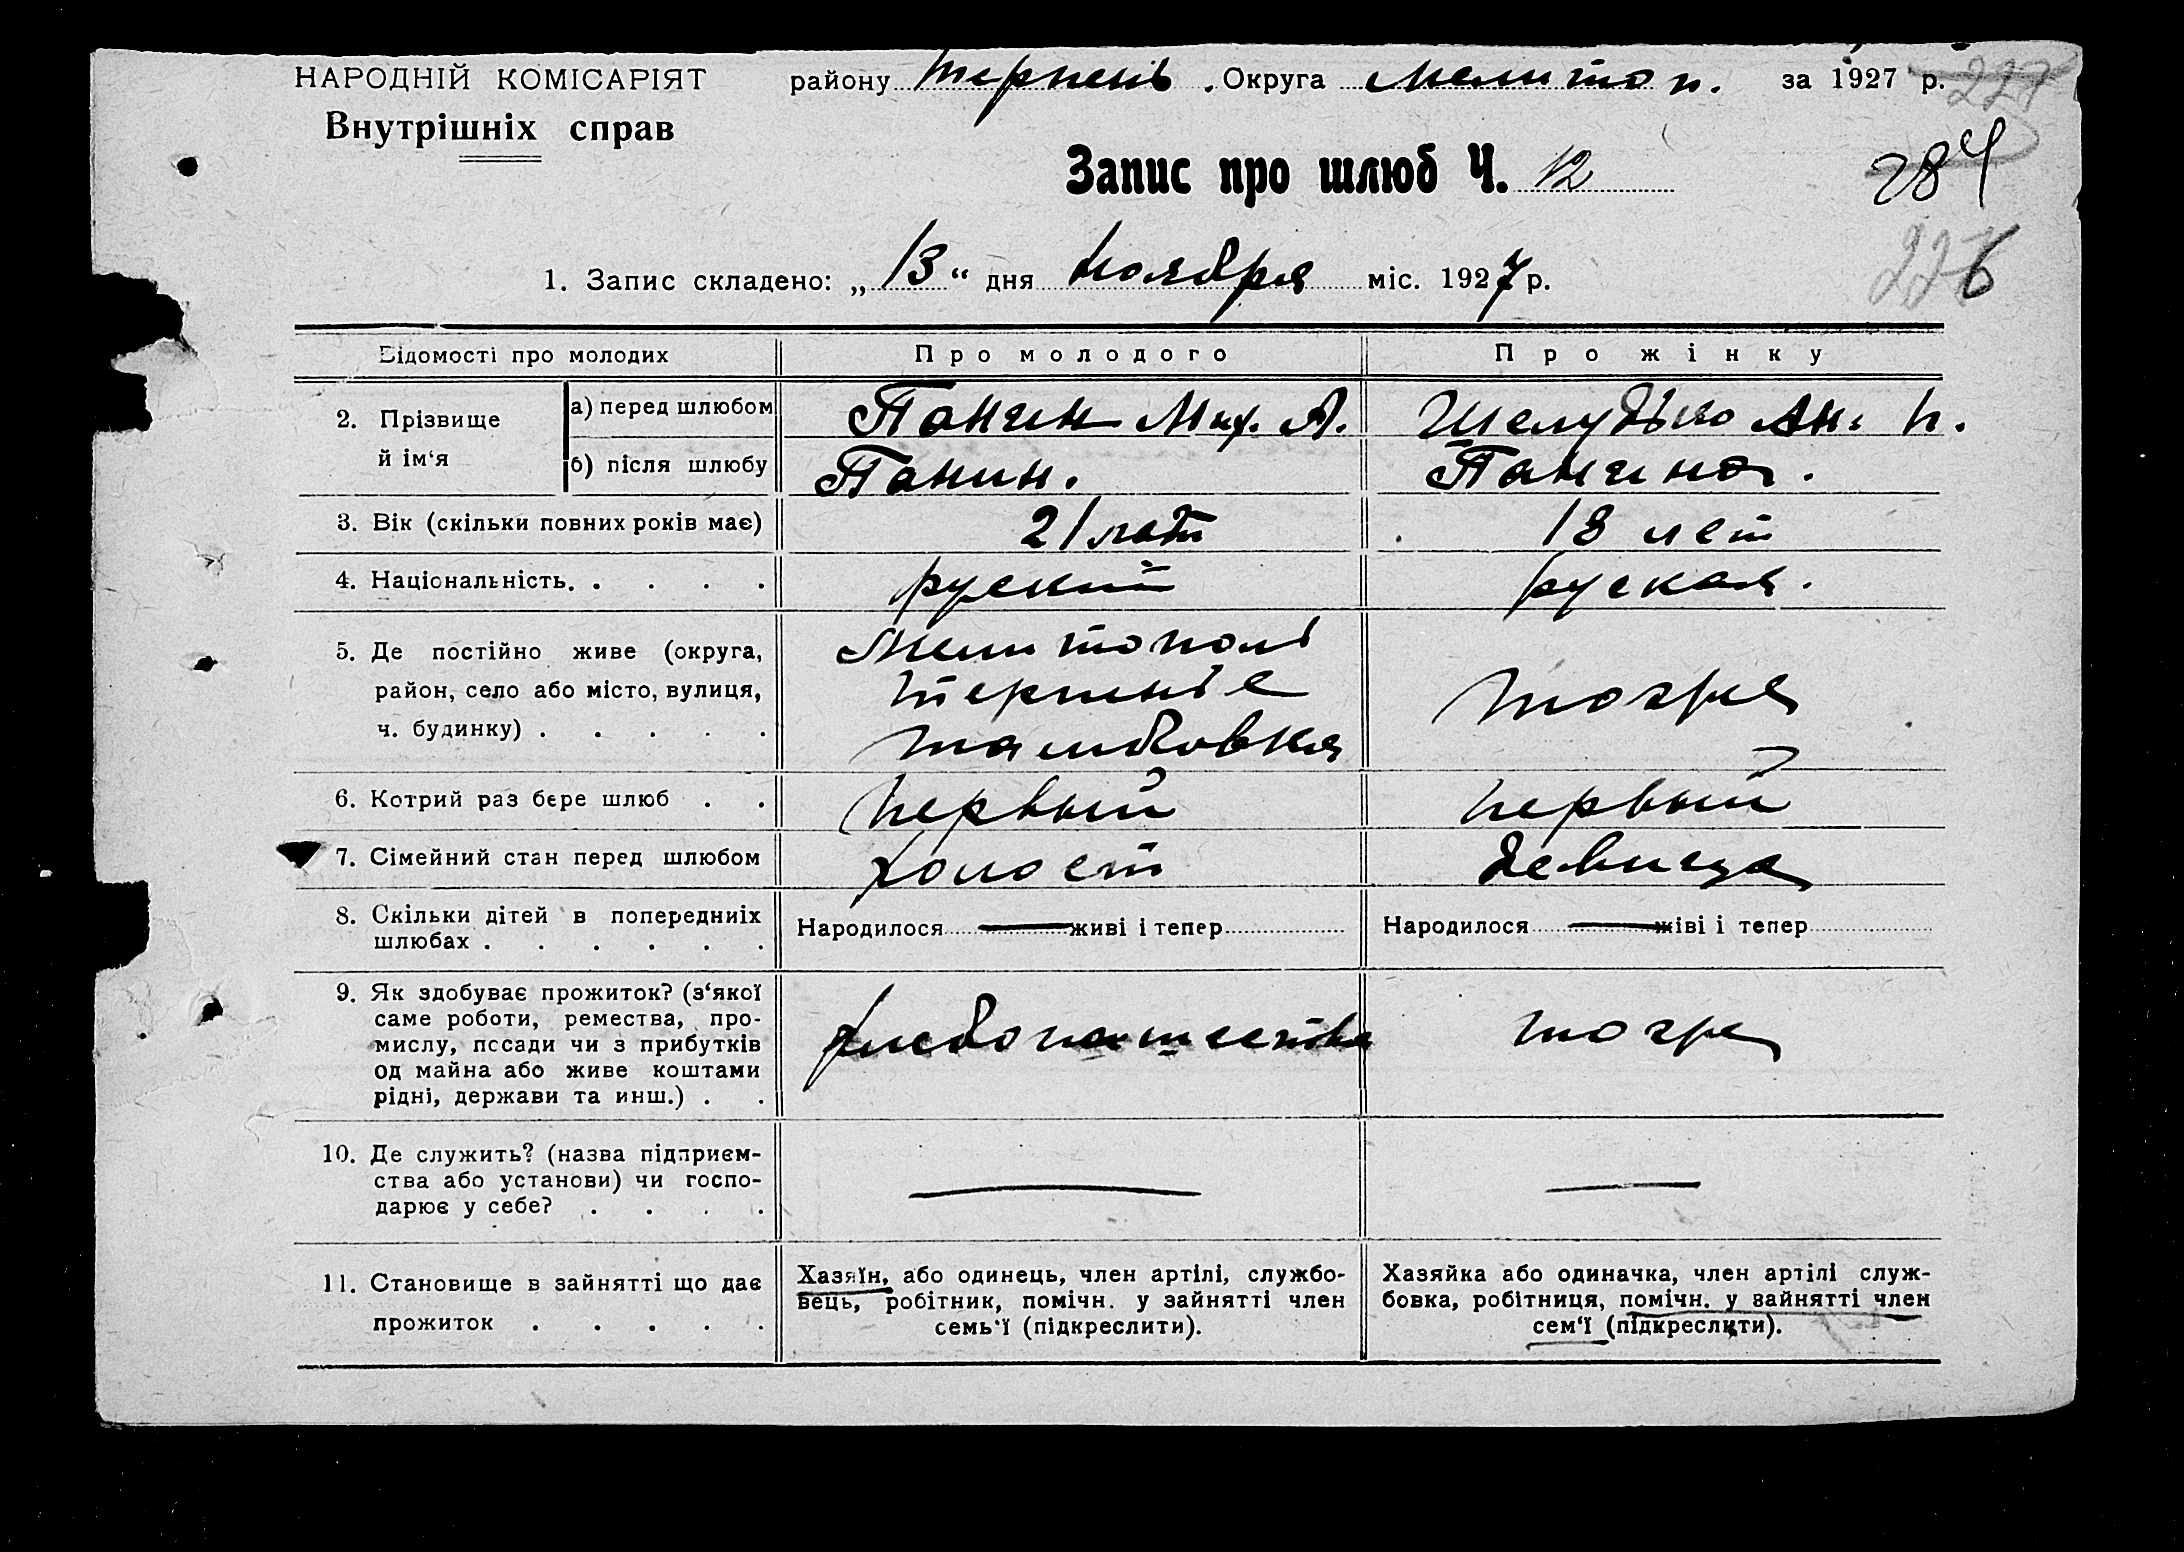 НАРОДНІЙ КОМІСАРІЯТ
Внутрішніх справ
району Терпень. Округа Мелитоп. за 1927 р.
227
Запис про шлюб Ч. 12
284
226
1. Запис складено: „13“ дня Ноября міс. 1927 р.
Відомості про молодих Про молодого Про жінку
2. Прізвище й ім‘я
а) перед шлюбом Панин Мих. А. Шелудько Ан. П.
б) після шлюбу Панин. Панина.
3. Вік (скільки повних років має) 21 лет 18 лет
4. Національність. . . . . руский руская.
5. Де постійно живе (округа,
район, село або місто, вулиця,
ч. будинку) . . . . .
Мелитополь
Терпение
Тамбовка
тоже
6. Котрий раз бере шлюб . . первый первый
7. Сімейний стан перед шлюбом холост девица
8. Скільки дітей в попередниіх
шлюбах . . . . . .
Народилося — живі і тепер
Народилося — жіві і тепер
9. Як здобуває прожиток? (з‘якої
саме роботи, ремества, про-
мислу, пссади чи з прибутків
од майна або живе коштами
рідні, держави та инш.) . .
хлебопашества
тоже
10. Де служить? (назва підприєм-
ства або установи) чи госпо-
дарює у себе? . . . .
— —
11. Становище в зайнятті що дає
прожиток . . . . .
Хазяїн, або одинець, член артілі, службо-
вець, робітник, помічн. у зайнятті член
семь‘ї (підкреслити).
Хазяйка або одиначка, член артілі служ-
бовка, робітниця, помічн. у зайнятті член
сем‘ї (підкреслити).